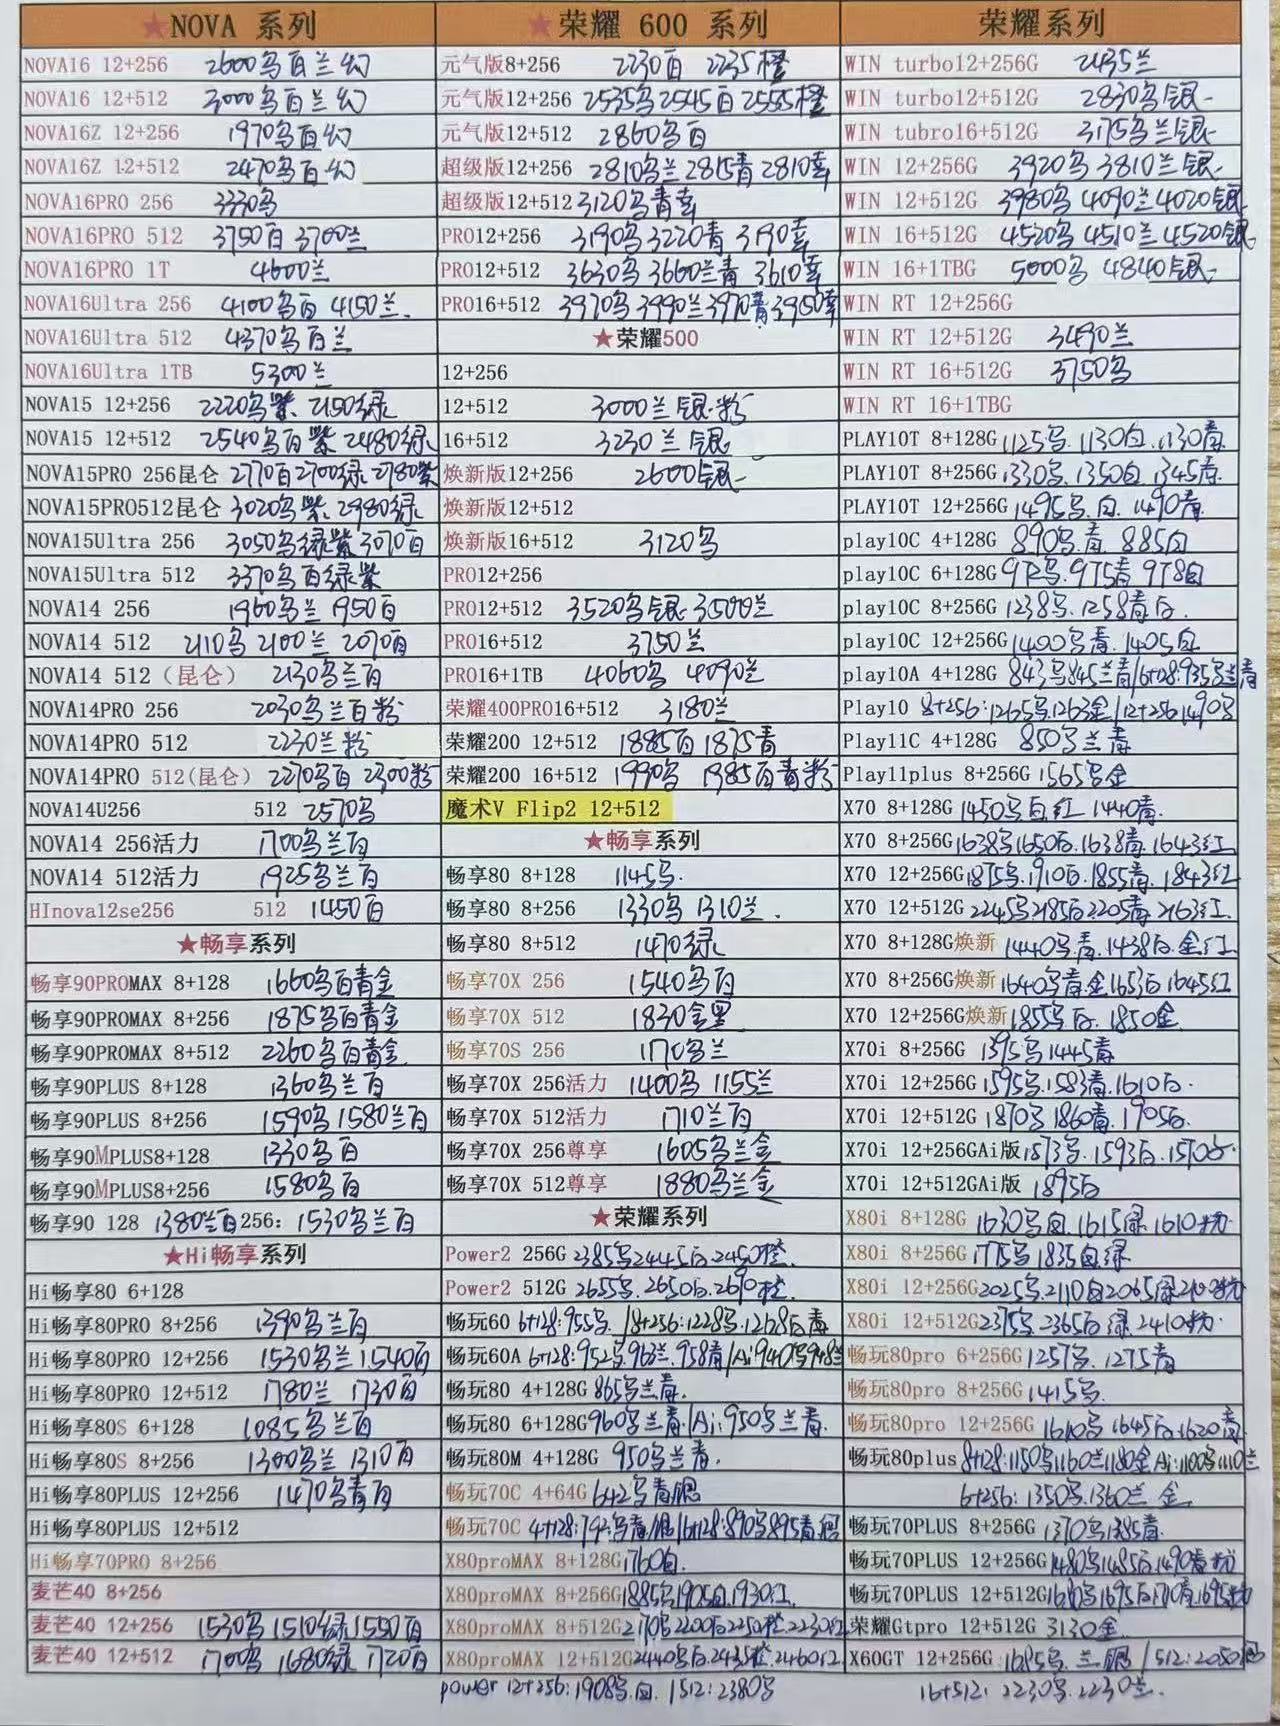 ★NOVA 系列
NOVA16 12+256 2600乌白兰幻
NOVA16 12+512 3000乌白兰幻
NOVA16Z 12+256 1970乌白幻
NOVA16Z 12+512 2470乌白幻
NOVA16PRO 256 3330乌
NOVA16PRO 512 3750白 3700兰
NOVA16PRO 1T 4600兰
NOVA16Ultra 256 4100乌白 4150兰.
NOVA16Ultra 512 4370乌白兰
NOVA16Ultra 1TB 5300兰
NOVA15 12+256 2220乌紫. 2150绿
NOVA15 12+512 2540乌白紫 2480绿
NOVA15PRO 256昆仑 2770白2700绿 2780紫
NOVA15PRO512昆仑 3020乌紫. 2980绿
NOVA15Ultra 256 3050乌绿紫 3070白
NOVA15Ultra 512 3370乌白绿紫
NOVA14 256 1960乌兰 1950白
NOVA14 512 2110乌 2100兰 2070白
NOVA14 512（昆仑） 2130乌兰白
NOVA14PRO 256 2030乌兰白粉
NOVA14PRO 512 2230兰粉
NOVA14PRO 512(昆仑) 2270乌白 2300粉
NOVA14U256 512 2570乌
NOVA14 256活力 1700乌兰白
NOVA14 512活力 1925乌兰白
HInova12se256 512 1450白
★畅享系列
畅享90PROMAX 8+128 1660乌白青金
畅享90PROMAX 8+256 1875乌白青金
畅享90PROMAX 8+512 2260乌白青金
畅享90PLUS 8+128 1360乌兰白
畅享90PLUS 8+256 1590乌 1580兰白
畅享90MPLUS8+128 1330乌白
畅享90MPLUS8+256 1580乌白
畅享90 128 1380兰白 256: 1530乌兰白
★Hi畅享系列
Hi畅享80 6+128
Hi畅享80PRO 8+256 1390乌兰白
Hi畅享80PRO 12+256 1530乌兰 1540白
Hi畅享80PRO 12+512 1780兰 1730白
Hi畅享80S 6+128 1085乌兰白
Hi畅享80S 8+256 1300乌兰 1310白
Hi畅享80PLUS 12+256 1470乌青白
Hi畅享80PLUS 12+512
Hi畅享70PRO 8+256
麦芒40 8+256
麦芒40 12+256 1530乌 1510绿 1550白
麦芒40 12+512 1700乌 1680绿 1720白
★荣耀 600 系列
元气版8+256 2230白 2235橙
元气版12+256 2535乌 2545白 2555橙
元气版12+512 2860乌白
超级版12+256 2810乌兰 2815青 2810幸
超级版12+512 3120乌青幸
PRO12+256 3190乌 3220青 3190幸
PRO12+512 3630乌 3660兰青 3610幸
PRO16+512 3970乌 3990兰 3970青 3950幸
★荣耀500
12+256
12+512 3000兰银.粉
16+512 3230兰银
焕新版12+256 2600银
焕新版12+512
焕新版16+512 3120乌
PRO12+256
PRO12+512 3520乌银. 3500兰
PRO16+512 3750兰
PRO16+1TB 4060乌 4090兰
荣耀400PRO16+512 3180兰
荣耀200 12+512 1885白 1875青
荣耀200 16+512 1990乌 1985白青粉
魔术V Flip2 12+512
★畅享系列
畅享80 8+128 1145乌.
畅享80 8+256 1330乌 1310兰.
畅享80 8+512 1470绿
畅享70X 256 1540乌白
畅享70X 512 1830金黑
畅享70S 256 1170乌兰
畅享70X 256活力 1400乌 1155兰
畅享70X 512活力 1710兰白
畅享70X 256尊享 1605乌兰金
畅享70X 512尊享 1880乌兰金
★荣耀系列
Power2 256G 2385乌 2445白.2450橙.
Power2 512G 2655乌. 2650白.2690橙.
畅玩60 6+128:955乌. /8+256:1228乌.1268白青
畅玩60A 6+128:952乌.963兰.958青/Ai:940乌948兰
畅玩80 4+128G 865乌兰青.
畅玩80 6+128G 960乌兰青./Ai:950乌兰青.
畅玩80M 4+128G 950乌兰青.
畅玩70C 4+64G 642乌青
畅玩70C 4+128:742乌青/6+128:890乌895青
X80proMAX 8+128G 1760白.
X80proMAX 8+256G 1885乌1905白.1930红.
X80proMAX 8+512G 2170乌2200白2250橙.2230红
X80proMAX 12+512G 2440乌白.2435橙.2460红
power 12+256:1908乌.白.1512:2380乌
荣耀系列
WIN turbo12+256G 2435兰
WIN turbo12+512G 2830乌银
WIN tubro16+512G 3175乌兰银
WIN 12+256G 3920乌 3810兰银
WIN 12+512G 3980乌 4090兰 4020银
WIN 16+512G 4520乌 4510兰 4520银
WIN 16+1TBG 5000乌 4840银
WIN RT 12+256G
WIN RT 12+512G 3490兰
WIN RT 16+512G 3750乌
WIN RT 16+1TBG
PLAY10T 8+128G 1125乌.1130白.1130青
PLAY10T 8+256G 1330乌.1350白.1345青.
PLAY10T 12+256G 1495乌.白. 1490青.
play10C 4+128G 890乌.青. 885白
play10C 6+128G 乌.975青 978白
play10C 8+256G 1238乌.1258青白.
play10C 12+256G 1400乌青.1405白
play10A 4+128G 843乌845兰青/6+128:935乌兰青
Play10 8+256:1265乌.1263金/12+256:1490乌
Play11C 4+128G 850乌兰青
Play11plus 8+256G 1565乌金
X70 8+128G 1450乌白红 1440青.
X70 8+256G 1638乌1650白.1638青.1643红
X70 12+256G 1875乌.1910白.1855青.1843红
X70 12+512G 2245乌2185白2205青 2163红.
X70 8+128G焕新 1440乌青.1438白.金.红
X70 8+256G焕新 1640乌青.金1653白 1645红
X70 12+256G焕新 1855乌白. 1850金.
X70i 8+256G 1395乌1445青
X70i 12+256G 1595乌.1583青.1610白.
X70i 12+512G 1870乌1860青.1905白.
X70i 12+256GAi版 1573乌.1593白.
X70i 12+512GAi版 1895白
X80i 8+128G 1630乌白.1615绿.1610
X80i 8+256G 1775乌1835白.绿
X80i 12+256G 2025乌.2110白2065绿
X80i 12+512G 2375乌.2365白绿.2410
畅玩80pro 6+256G 1257乌.1275青
畅玩80pro 8+256G 1415乌.
畅玩80pro 12+256G 1610乌1645白.1620青
畅玩80plus 8+128:1150乌1160兰1180金Ai:1100乌1110兰
6+256:1350乌.1360兰金
畅玩70PLUS 8+256G 1370乌1385青.
畅玩70PLUS 12+256G 1480乌1485白1490青
畅玩70PLUS 12+512G 1695白1710青
荣耀Gtpro 12+512G 3130金
X60GT 12+256G 1685乌.兰 /512:2050
16+512: 2230乌.2230兰.